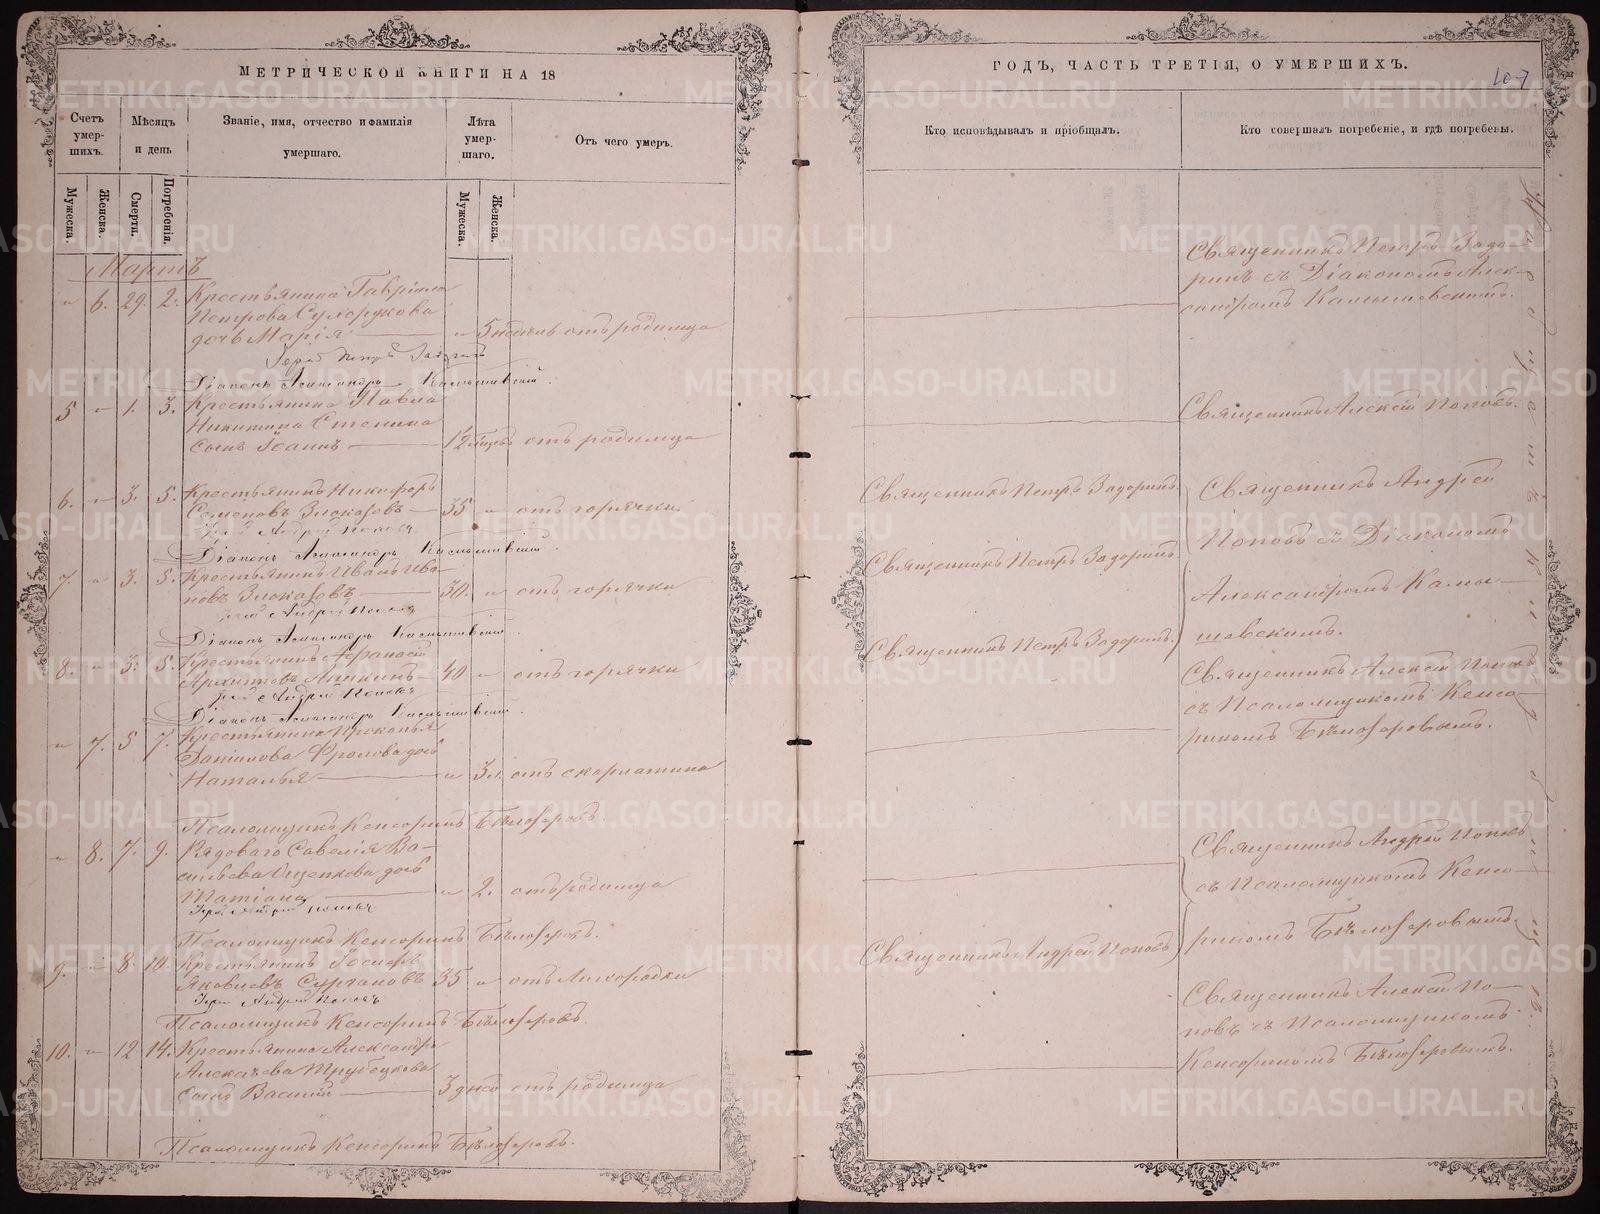 МЕТРИЧЕСКОЙ КНИГИ НА 18
Счетъ умер-шихъ.
Мѣсяцъ и день
Званіе, имя, отчество и фамилія умершаго.
Лѣта умер-шаго.
Отъ чего умеръ.
Мужеска.
Женска.
Смерти.
Погребенія.
Мужеска.
Женска.
Мартъ
6. 29. 2. Крестьянина Гавріила
Петрова Сухорукова
дочь Марія 5 отъ родимца
Діаконъ Александръ Камышевскій.
5 1. 3. Крестьянина Павла
Никитина Стенина
сынъ Іоаннъ 1/2 отъ родимца
6. 3. 5. Крестьянинъ Никифоръ
Семеновъ Злоказовъ 35 отъ горячки
Іерей Андрей Поповъ
Діаконъ Александръ Камышевскій
7. 3. 5. Крестьянинъ Иванъ Ива-
новъ Злоказовъ 30. отъ горячки
Іерей Андрей Поповъ
Діаконъ Александръ Камышевскій
8. 3. 5. Крестьянинъ
40 отъ горячки
Іерей Андрей Поповъ
Діаконъ Александръ Камышевскій
7. 5 7. Крестьянина Прокопья
Данилова Фролова дочь
Наталья 3 отъ скарлатины
Псаломщикъ Кенсоринъ Бѣлозеровъ.
8. 7. 9. Рядоваго Савелія Ва-
сильева дочь
Татіана 2. отъ родимца
Іерей Андрей Поповъ
Псаломщикъ Кенсоринъ Бѣлозеровъ.
9. 8. 10. Крестьянинъ Іосифъ
Яковлевъ 35 отъ лихорадки
Іерей Андрей Поповъ
Псаломщикъ Кенсоринъ Бѣлозеровъ
10. 12 14. Крестьянина Александра
Алексѣева Трубецкова
сынъ Василій 3 отъ родимца
Псаломщикъ Кенсоринъ Бѣлозеровъ.
ГОДЪ, ЧАСТЬ ТРЕТІЯ, О УМЕРШИХЪ.
Кто исповѣдывалъ и пріобщалъ.
Кто совершалъ погребеніе, и гдѣ погребены.
Священникъ Петръ Задо-
ринъ съ Діакономъ Алек-
сандромъ Камышевскимъ.
Священникъ Алексѣй Поповъ.
Священникъ Петръ Задоринъ.
Священникъ Андрей
Поповъ съ Діакономъ
Священникъ Петръ Задоринъ
Александромъ Камы-
шевскимъ.
Священникъ Петръ Задоринъ.
Священникъ Алексѣй Поповъ
съ Псаломщикомъ Кенсо-
риномъ Бѣлозеровымъ.
Священникъ Андрей Поповъ
съ Псаломщикомъ Кенсо-
риномъ Бѣлозеровымъ.
Священникъ Андрей Поповъ
Священникъ Алексѣй По-
повъ съ Псаломщикомъ
Кенсориномъ Бѣлозеровымъ.
METRIKI.GASO-URAL.RU